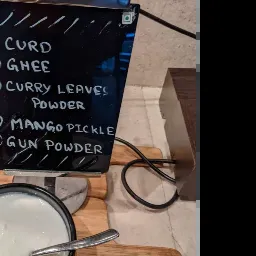 CURD
GHEE
CURRY LEAVES
POWDER
MANGO PICKLE
GUN POWDER